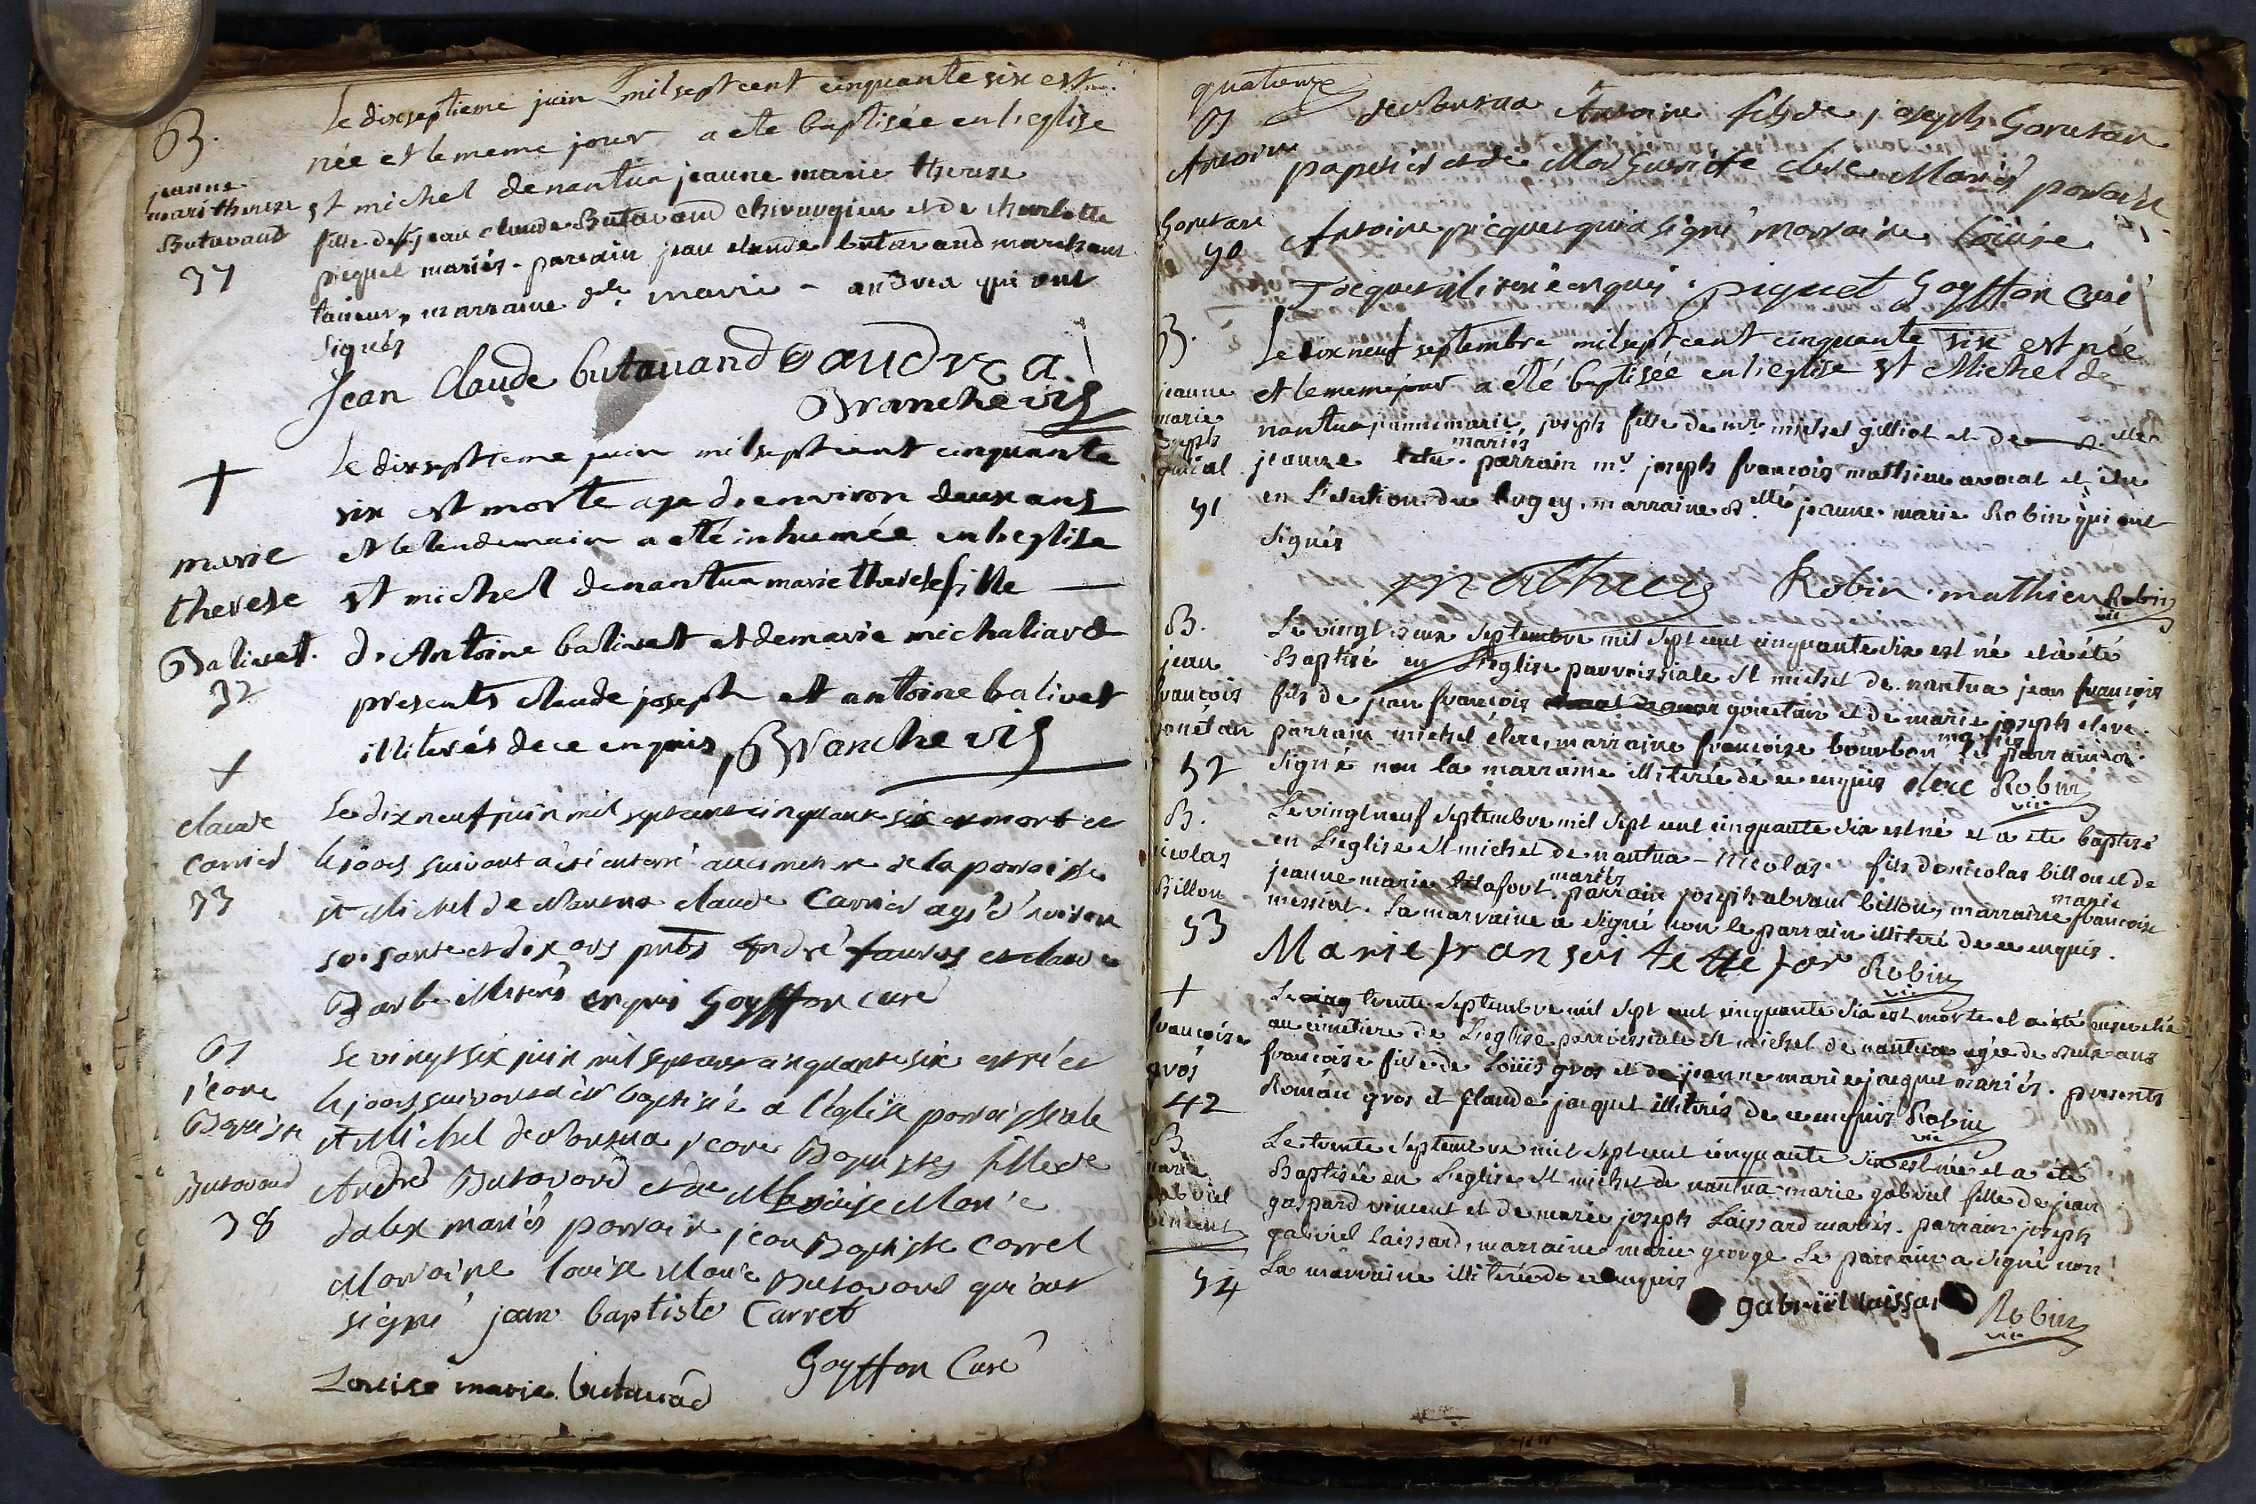 B.
jeanne
marie therese
Butavand
37
Le dixseptieme juin mil sept cent cinquante six est
née et le meme jour a ete baptisée en l'eglise
st michel de nantua jeanne marie therese
fille de sr jean claude Butavand chirurgien et de charlotte
piquet mariés. parrain jean claude butavand marchant
taneur, marraine dlle marie andrea qui ont
signés
Jean Claude butavand D audrea
Branche vis
+
marie
therese
Balivet.
32
le dixseptieme juin mil sept cent cinquante
six est morte age d'environ deux ans
et le lendemain a eté inhumée en l'eglise
st michel de nantua marie therese fille
d'Antoine balivet et de marie michaliard
presents claude joseph et antoine balivet
illiterés de ce enquis Branche vis
+
claude
Carrier
33
Le dix neuf juin mil sept cent cinquante six est mort et
le jour suivant a été enterré au cimetiere de la parroisse
st Michel de Nantua claude Carrier agé d'environ
soisante et dix ans pnts André et claude
Barbe illiterés enquis Goyffon curé
B
jeane
Baptiste
Butavand
38
Le vingt six juin mil sept cent cinquante six est né et
le jour suivant a été baptisé a l'église parroissiale
st Michel de Nantua jeane Baptiste fille de
André Butavand et de Louise Marie
dalex mariés parrain jean Baptiste Carret
Marraine louise Marie Butavand qui ont
signé jean baptiste Carret
Goyffon Curé
Louise marie butavād
quatorze
B
Antoine
Gonetan
50
de Nantua Antoine fils de joseph Gonetan
papetier et de Marguerite clere Mariés parrain
Antoine picquet qui a signé marraine louise
Jocquet illiteré enquis. piquet Goyffon Curé
B.
jeanne
marie
joseph
51
Le dix neuf septembre mil sept cent cinquante six est née
et le meme jour a été baptisée en l'eglise st Michel de
nantua jeanne marie joseph fille de mr. michel gilliot et de dlle
jeanne mariés parrain mr. joseph françois mathieu avocat et élu
en l'election du bugey, marraine dlle jeanne marie Robin qui ont
signés
mathieu Robin. mathieu Robin
vic
B.
jean
françois
gonétan
52
Le vingt deux septembre mil sept cent cinquante six est né et a été
Baptisé en L'eglise parroissiale st michel de nantua jean françois
fils de jean françois gonetan et de marie joseph clere mariés.
parrain michel clere, marraine françoise bourbon le parrain a
signé non la marraine illiterée de ce enquis clere Robin
vic
B.
nicolas
Billon
53
Le vingt neuf septembre mil sept cent cinquante six est né et a ete baptisé
en L'eglise st michel de nantua - Nicolas fils de nicolas billon et de
jeanne marie lafort mariés parrain joseph abram billon, marraine marie françoise
messiat. la marraine a signé non le parrain illiteré de ce enquis.
Robin
vic
+
françoise
gros
42
Le trente septembre mil sept cent cinquante six est morte et a été ensevelie
au cimetiere de L'eglise parroissiale st michel de nantua agée de deux ans
françoise fille de Louis gros et de jeanne marie jacquet mariés. presents
Roman gros et claude jacquet illiterés de ce enquis Robin
vic
B.
marie
gabriel
vincent
54
Le trente septembre mil sept cent cinquante six est née et a été
Baptisée en L'eglise st michel de nantua marie gabriel fille de jean
gaspard vincent et de marie joseph Laissard mariés. parrain joseph
gabriel laissard, marraine marie george Le parrain a signé non
La marraine illiterée de ce enquis
gabriel laissar
Robin
vic